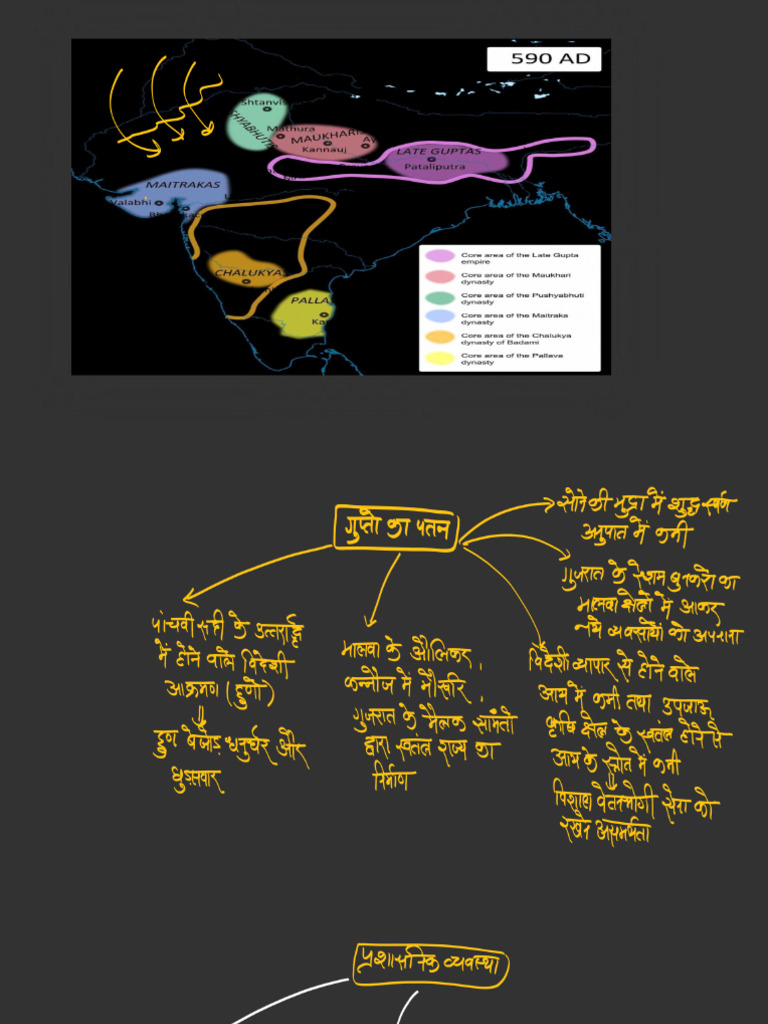 590 AD
shtanvis
HYABHUTI
Mathura
MAUKHARI
Kannauj
LATE GUPTAS
Pataliputra
MAITRAKAS
Valabhi
CHALUKYA
PALLA
Ka
Core area of the Late Gupta
empire
Core area of the Maukhari
dynasty
Core area of the Pushyabhuti
dynasty
Core area of the Maitraka
dynasty
Core area of the Chalukya
dynasty of Badami
Core area of the Pallava
dynasty
गुप्तो का पतन
सोने की मुद्रा में शुद्ध स्वर्ण
अनुपात में कमी
गुजरात के रेशम बुनकरो का
मालवा क्षेत्रों में आकर
नये व्यवसायों को अपनाना
पांचवी सदी के उत्तरार्द्ध
में होने वाले विदेशी
आक्रमण (हूणो)
हूण बेजोड़ धनुर्धर और
घुड़सवार
मालवा के औलिकर,
कन्नौज में मौखरि,
गुजरात के मैत्रक सामंतो
द्वारा स्वतंत्र राज्य का
निर्माण
विदेशी व्यापार से होने वाले
आय में कमी तथा उपजाऊ
कृषि क्षेत्र के स्वतंत्र होने से
आय के स्रोत में कमी
विशाल वेतनभोगी सेना को
रखने असमर्थता
प्रशासनिक व्यवस्था